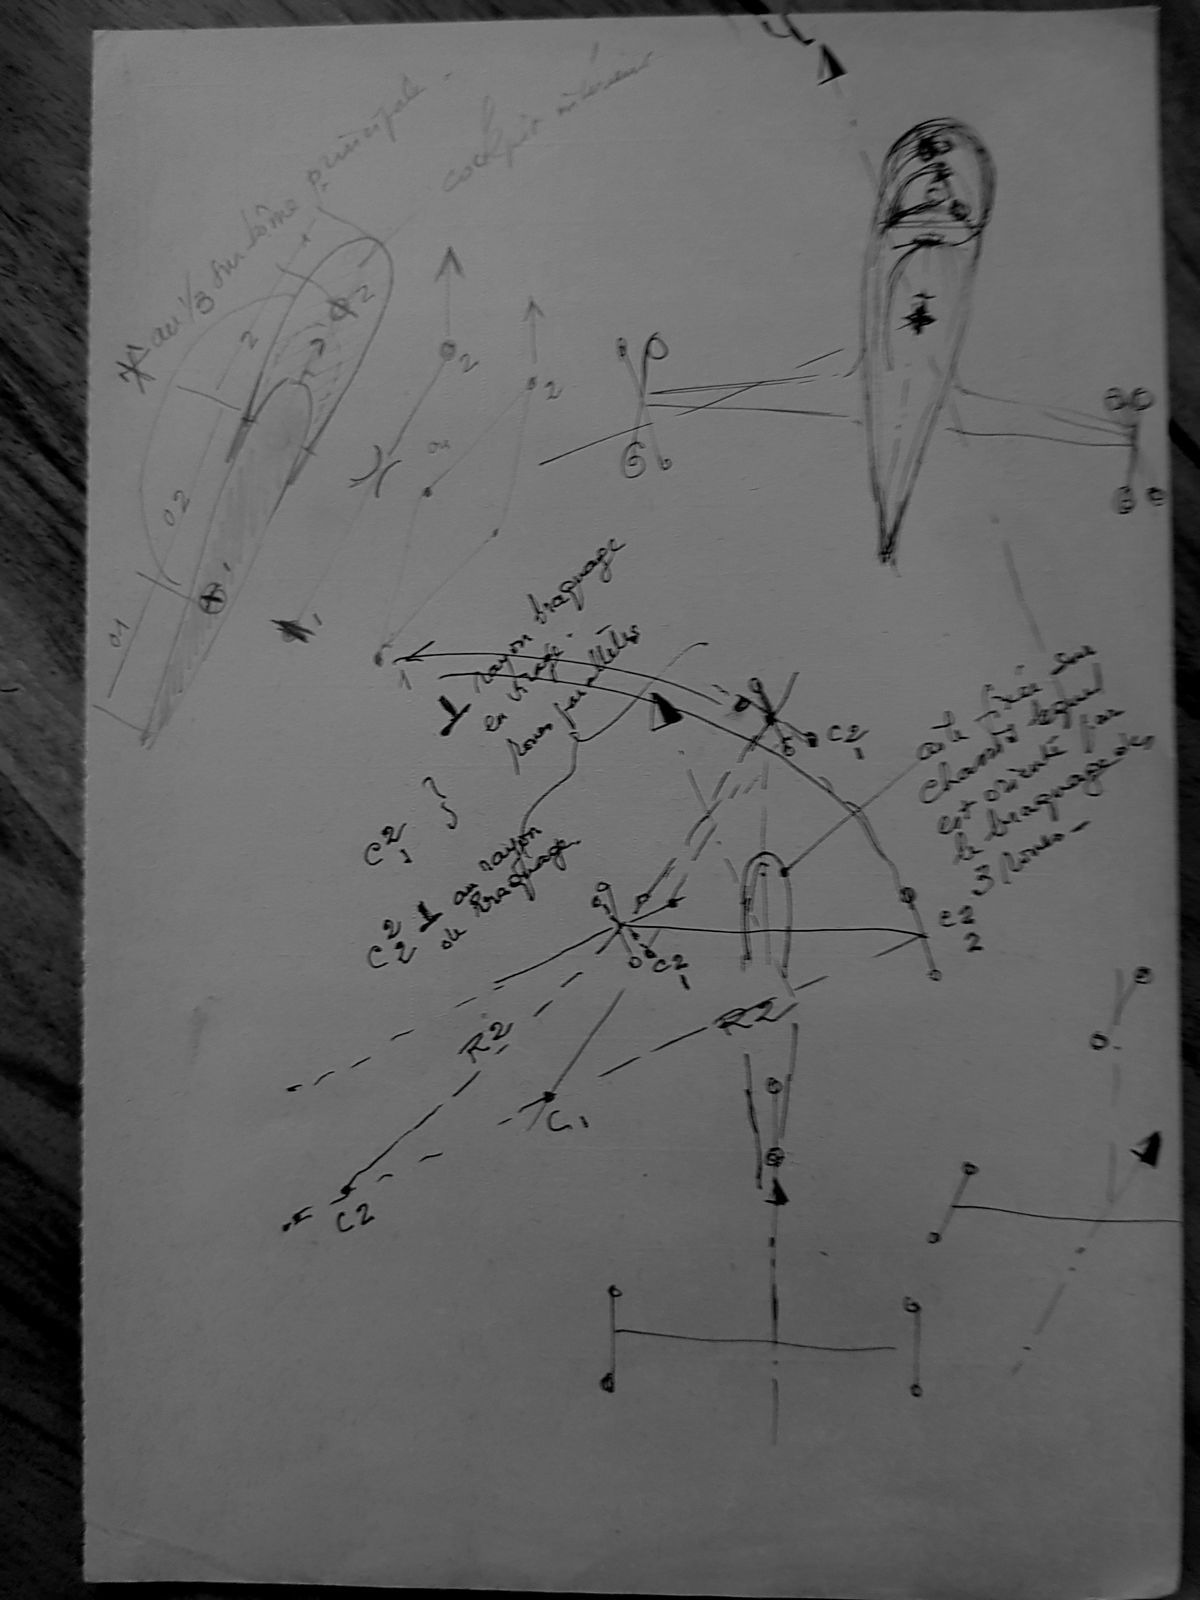 au 1/3 sur dôme principale
cockpit intérieur
2
2
2
2
1
02
01
1
01
1
1
⊥ rayon braquage
en virage.
Roues parallèles
C2 1 ?
C2 2 ⊥ au rayon
de braquage.
C2 1
fixée sur
chassis lequel
est orienté par
le braquage des
3 Roues -
C2 2
C2 1
R2
R2
C1
C2